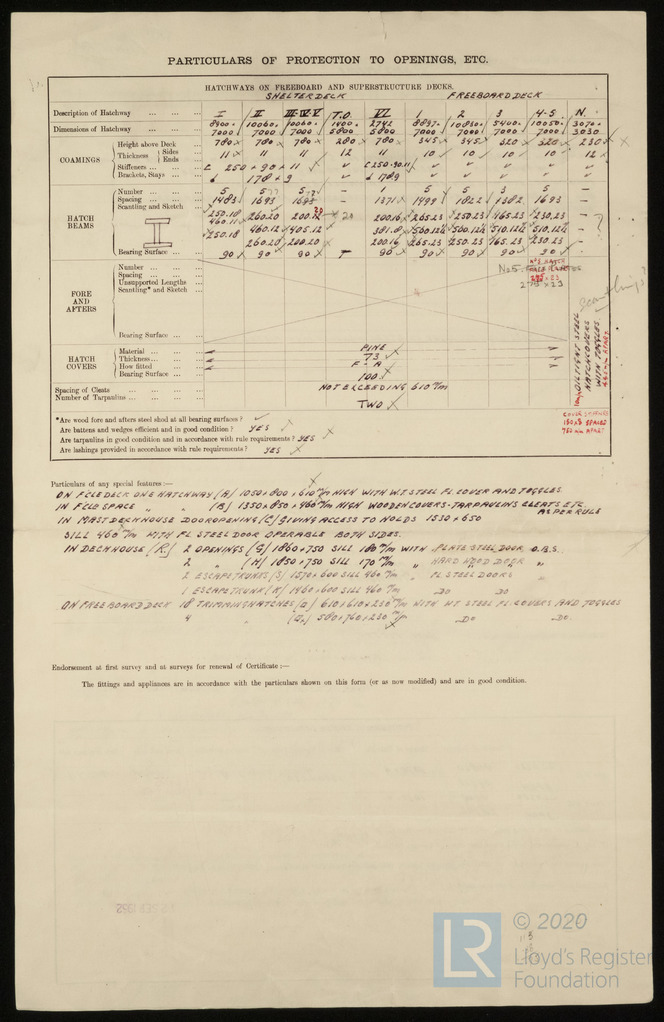 PARTICULARS OF PROTECTION TO OPENINGS, ETC.
HATCHWAYS ON FREEBOARD AND SUPERSTRUCTURE DECKS.
SHELTER DECK FREEBOARD DECK
Description of Hatchway ... ... ... I II III-IV-V T.O. VI 1 2 3 4-5 N.
Dimensions of Hatchway ... ... ... 8900 10060 10060 1400 2742 8897 10830 2400 10050 3070
7000 7000 7000 5800 5800 7000 7000 7000 7000 3030
COAMINGS
Height above Deck 780 780 780 280 780 345 345 320 320 230
Thickness Sides Ends 11 11 11 12 11 10 10 10 10 12
Stiffeners ... ... ... 250 + 90 + 11 250-90-11
Brackets, Stays ... ... 178 + 9 1789
HATCH BEAMS
Number ... ... ... 5 5 5 - 1 5 5 3 5 -
Spacing ... ... ... 1483 1693 1693 - 1371 1499 1822 1382 1693
Scantling and Sketch 250.18 260.20 200.20 200.16 265.23 250.23 165.23 230.23
460.11 460.12 405.12 381.8 560.12½ 560.12½ 510.12½ 510.12½
250.18 260.20 200.20 200.16 265.23 250.23 165.23 230.23
Bearing Surface ... ... 90 90 90 90 90 90 90 90
FORE AND AFTERS
Number ... ... ...
Spacing ... ... ...
Unsupported Lengths
Scantling* and Sketch
275 x 23
Bearing Surface ... ...
OILTIGHT STEEL
HATCHCOVERS
WITH TOGGLES
HATCH COVERS
Material ... ... ... PINE
Thickness ... ... ... 73
How fitted ... ... F - A
Bearing Surface ... ... 100
Spacing of Cleats ... ... ... ... NOT EXCEEDING 610 m/m
Number of Tarpaulins ... ... ... ... TWO
*Are wood fore and afters steel shod at all bearing surfaces?
Are battens and wedges efficient and in good condition? YES
Are tarpaulins in good condition and in accordance with rule requirements? YES
Are lashings provided in accordance with rule requirements? YES
Particulars of any special features:—
ON FCLE DECK ONE HATCHWAY (A) 1050+800+610 m/m HIGH WITH W.T. STEEL FL COVER AND TOGGLES
IN FCLE SPACE " " (B) 1350+850+460 m/m HIGH WOODEN COVERS-TARPAULINS CLEATS ETC. AS PER RULE
IN MAST DECKHOUSE DOOROPENING (C) GIVING ACCESS TO HOLDS 1530+650
SILL 460 m/m WITH FL STEEL DOOR OPERABLE BOTH SIDES.
IN DECKHOUSE (R) 2 OPENINGS (G) 1860+750 SILL 180 m/m WITH PLATE STEEL DOOR O.B.S.
2 " (H) 1850+750 SILL 170 m/m " HARD WOOD DOOR "
2 ESCAPE TRUNKS (S) 1570+600 SILL 460 m/m " FL STEEL DOORS "
1 ESCAPE TRUNK (K) 1460+600 SILL 460 m/m DO DO
ON FREEBOARD DECK 18 TRIMMING HATCHES (Q) 610+610+230 m/m WITH WT STEEL FL-COVERS AND TOGGLES
4 " 580+760+230 m/m DO DO.
Endorsement at first survey and at surveys for renewal of Certificate:—
The fittings and appliances are in accordance with the particulars shown on this form (or as now modified) and are in good condition.
LR
© 2020
Lloyd's Register
Foundation